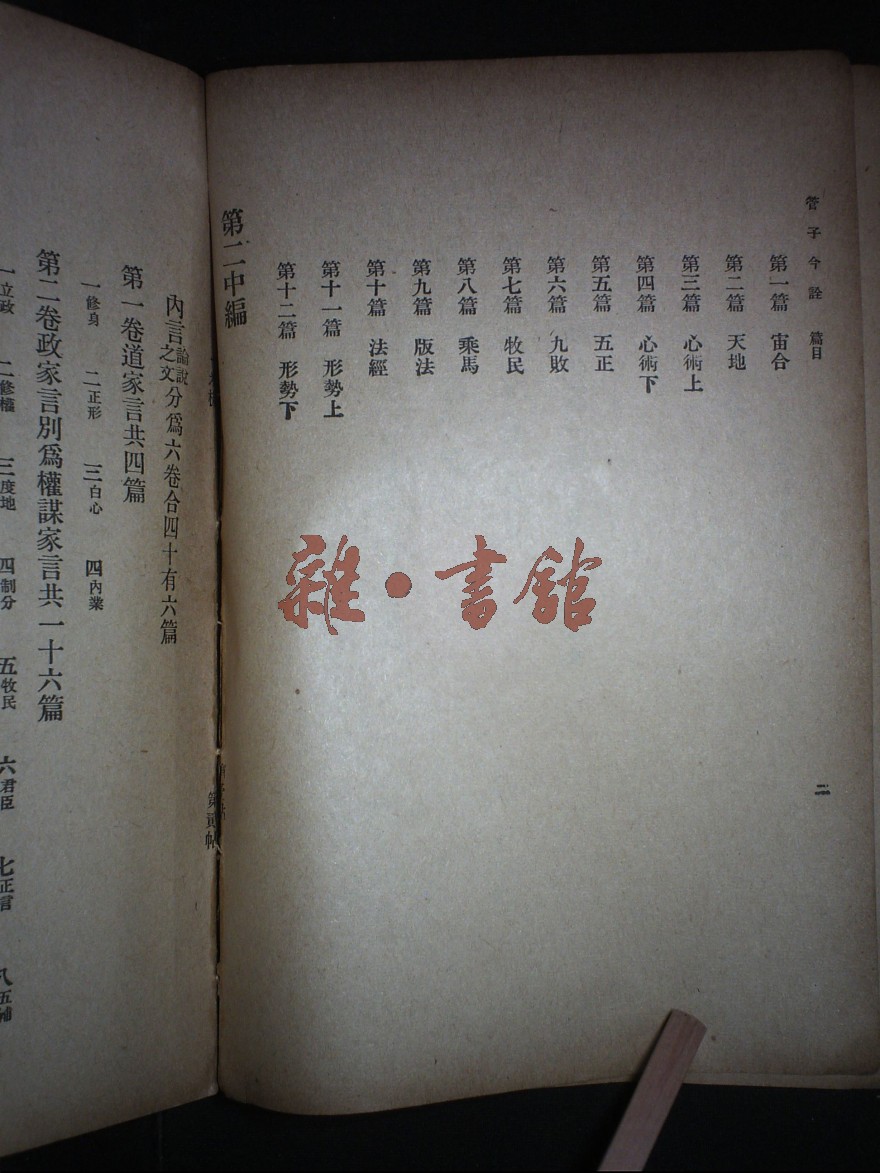 管子今詮 篇目
二
第一篇 宙合
第二篇 天地
第三篇 心術上
第四篇 心術下
第五篇 五正
第六篇 九敗
第七篇 牧民
第八篇 乘馬
第九篇 版法
第十篇 法經
第十一篇 形勢上
第十二篇 形勢下
第二中編
內言論說之文分爲六卷合四十有六篇
第一卷道家言共四篇
一修身 二正形 三白心 四內業
第二卷政家言別爲權謀家言共一十六篇
一立政 二修權 三度地 四制分 五牧民 六君臣 七正言 八五補
雜·書館